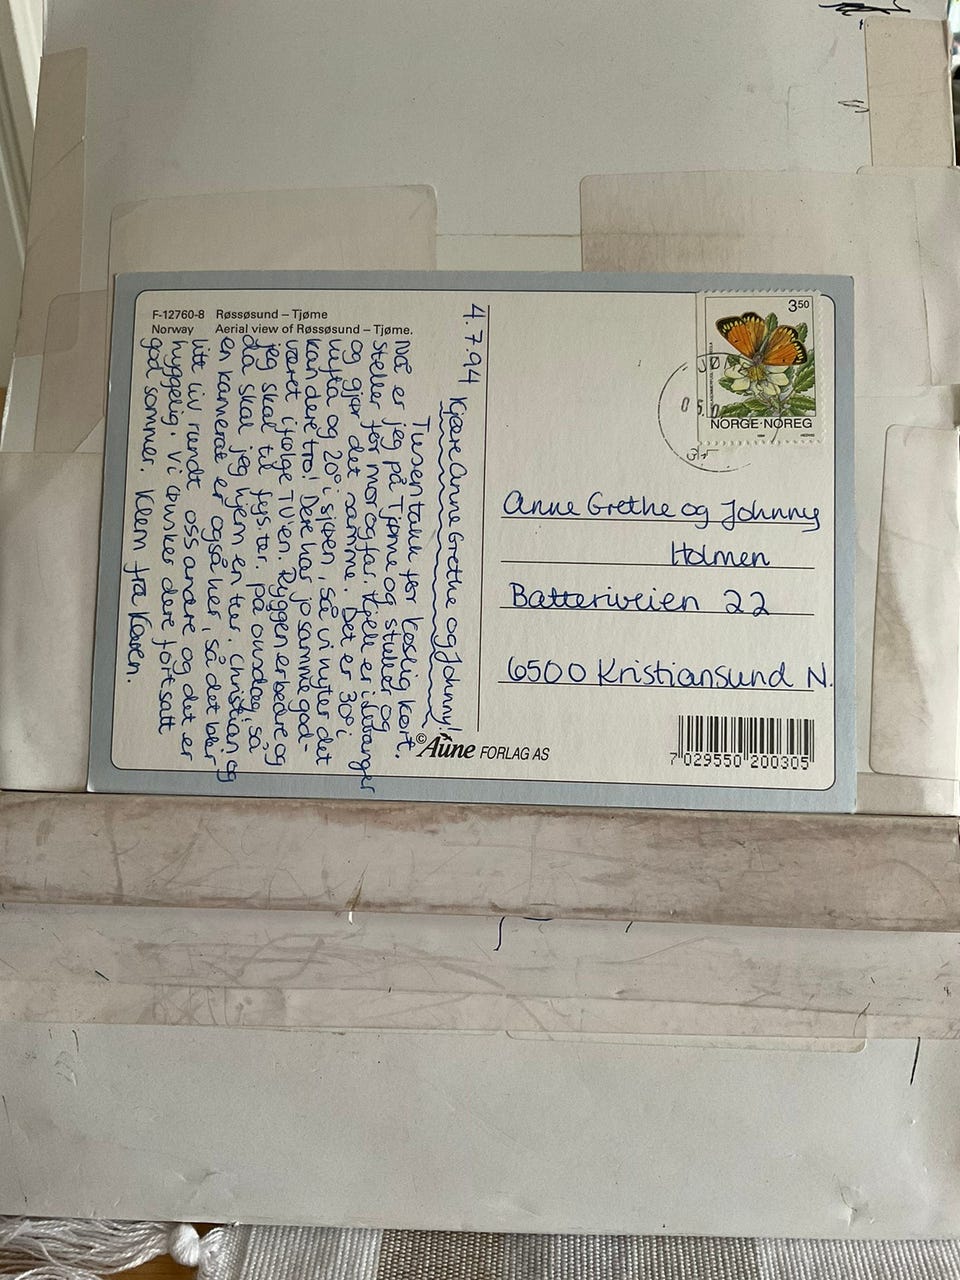 F-12760-8 Røssøsund – Tjøme
Norway Aerial view of Røssøsund – Tjøme.
4.7.94 Kjære Anne Grethe og Johnny!
Tusen takk for koslig kort.
Nå er jeg på Tjøme og stuller og
steller for mor og far. Kjell er i Stavanger
og gjør det samme. Det er 30° i
hytta og 20° i sjøen, så vi nyter det
kan dere tro! Dere har jo samme god-
været ifølge TV'en. Ryggen er bedre og
jeg skal til fys.ter. på onsdag, så
da skal jeg hjem en tur. Christian og
en kamerat er også her, så det blir
litt liv rundt oss andre og det er
hyggelig. Vi ønsker dere fortsatt
god sommer. Klem fra Karen.
©Aune FORLAG AS
350
NORGE·NOREG
Anne Grethe og Johnny
Holmen
Batteriveien 22
6500 Kristiansund N.
7 029550 200305